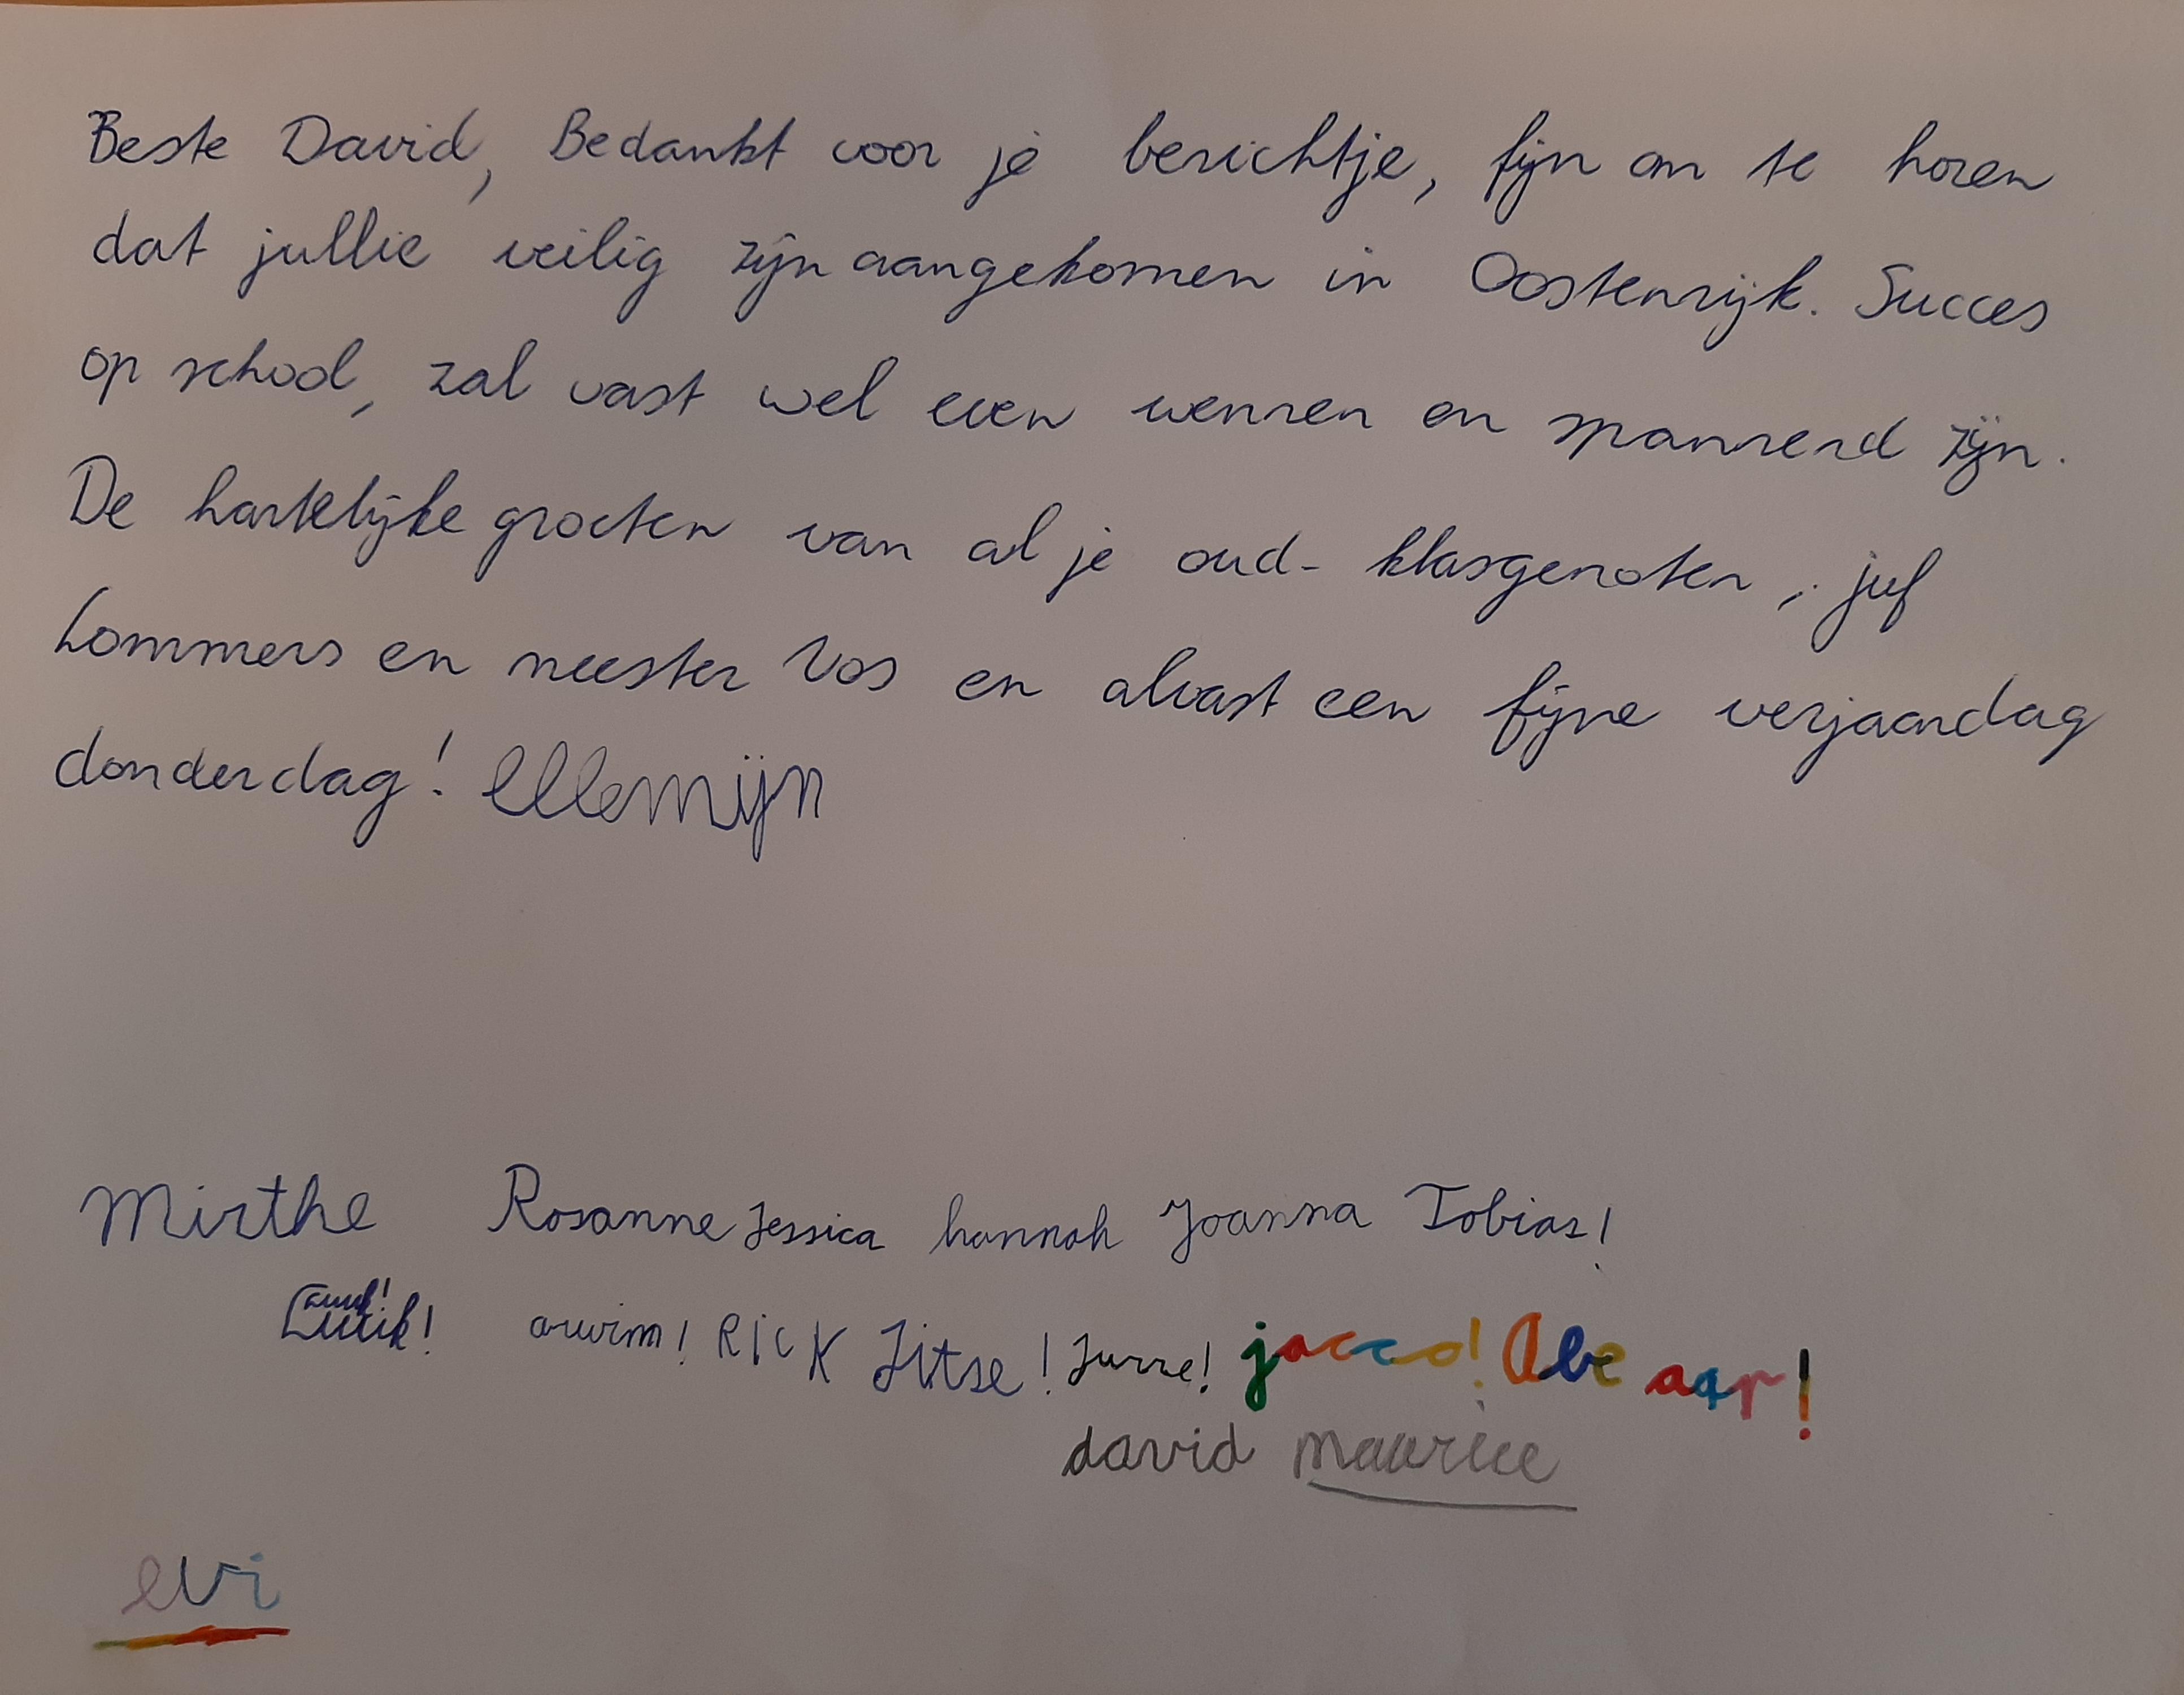 Beste David, Bedankt voor je berichtje, fijn om te horen
dat jullie veilig zijn aangekomen in Oostenrijk. Succes
op school, zal vast wel even wennen en spannend zijn.
De hartelijke groeten van al je oud-klasgenoten, juf
Lommers en meester Vos en alvast een fijne verjaardag
donderdag! Ellemijn
Mirthe Rosanne Jessica hannah Joanna Tobias!
aruvim! RICK Jitse! Jurre! jacco! Abe aap!
david maurice
evi